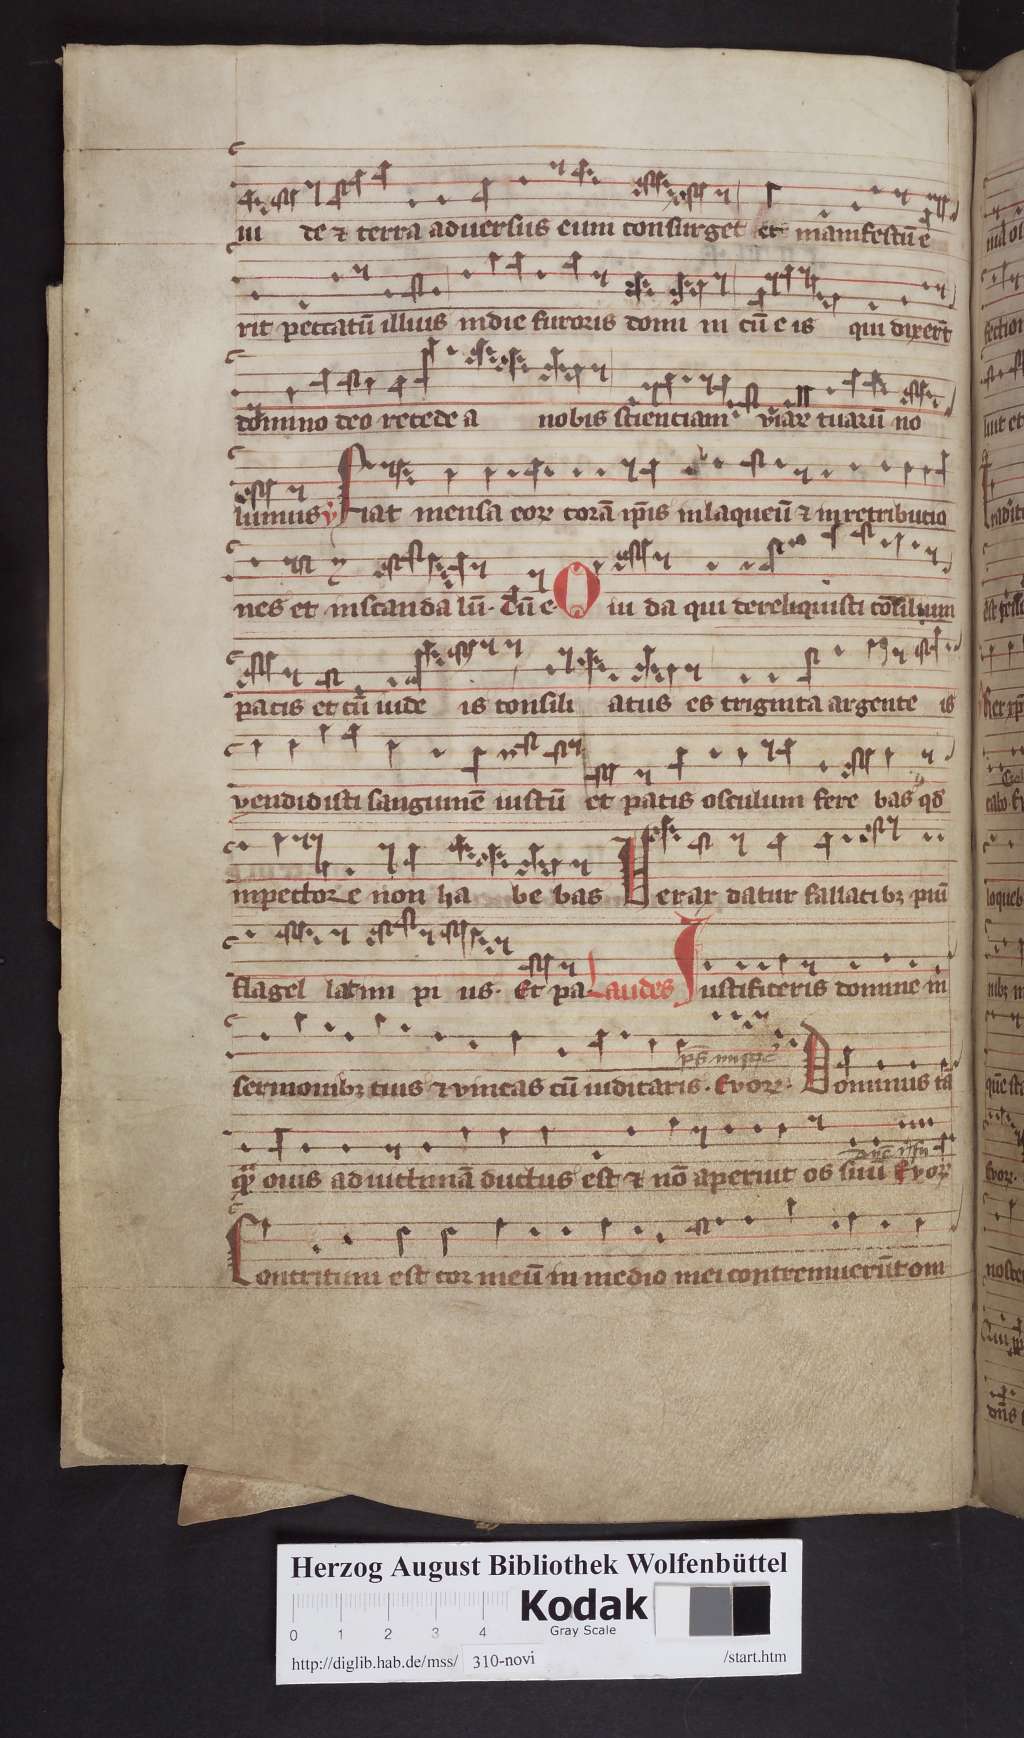 iu de ⁊ terra aduersus eum consurget et manifestū e
rit peccatū illius in die furoris domi ni cū e is qui dixerūt
domino deo recede a nobis scienciam viaꝝ tuarū no
lumus ꝟ Fiat mensa eoꝝ corā ip̄is in laqueū ⁊ in retributio
nes et in scanda lū. Cū e. O iu da qui dereliquisti consilium
pacis et cū iude is consili atus es triginta argente is
vendidisti sanguinē iustū et pacis osculum fere bas qd̄
in pectore non ha be bas Verax datur fallacibꝫ piū
flagel lat im pi us. Et pa Laudes Iustificeris domine in
sermonibꝫ tuis ⁊ vincas cū iudicaris. Evoꝝ. Dominus tā
qͣꝫ ouis ad victimā ductus est ⁊ nō aperuit os suū Evoꝝ
Contritum est cor meū in medio mei contremuerūt om
Herzog August Bibliothek Wolfenbüttel
Kodak
Gray Scale
0 1 2 3 4
http://diglib.hab.de/mss/ 310-novi /start.htm